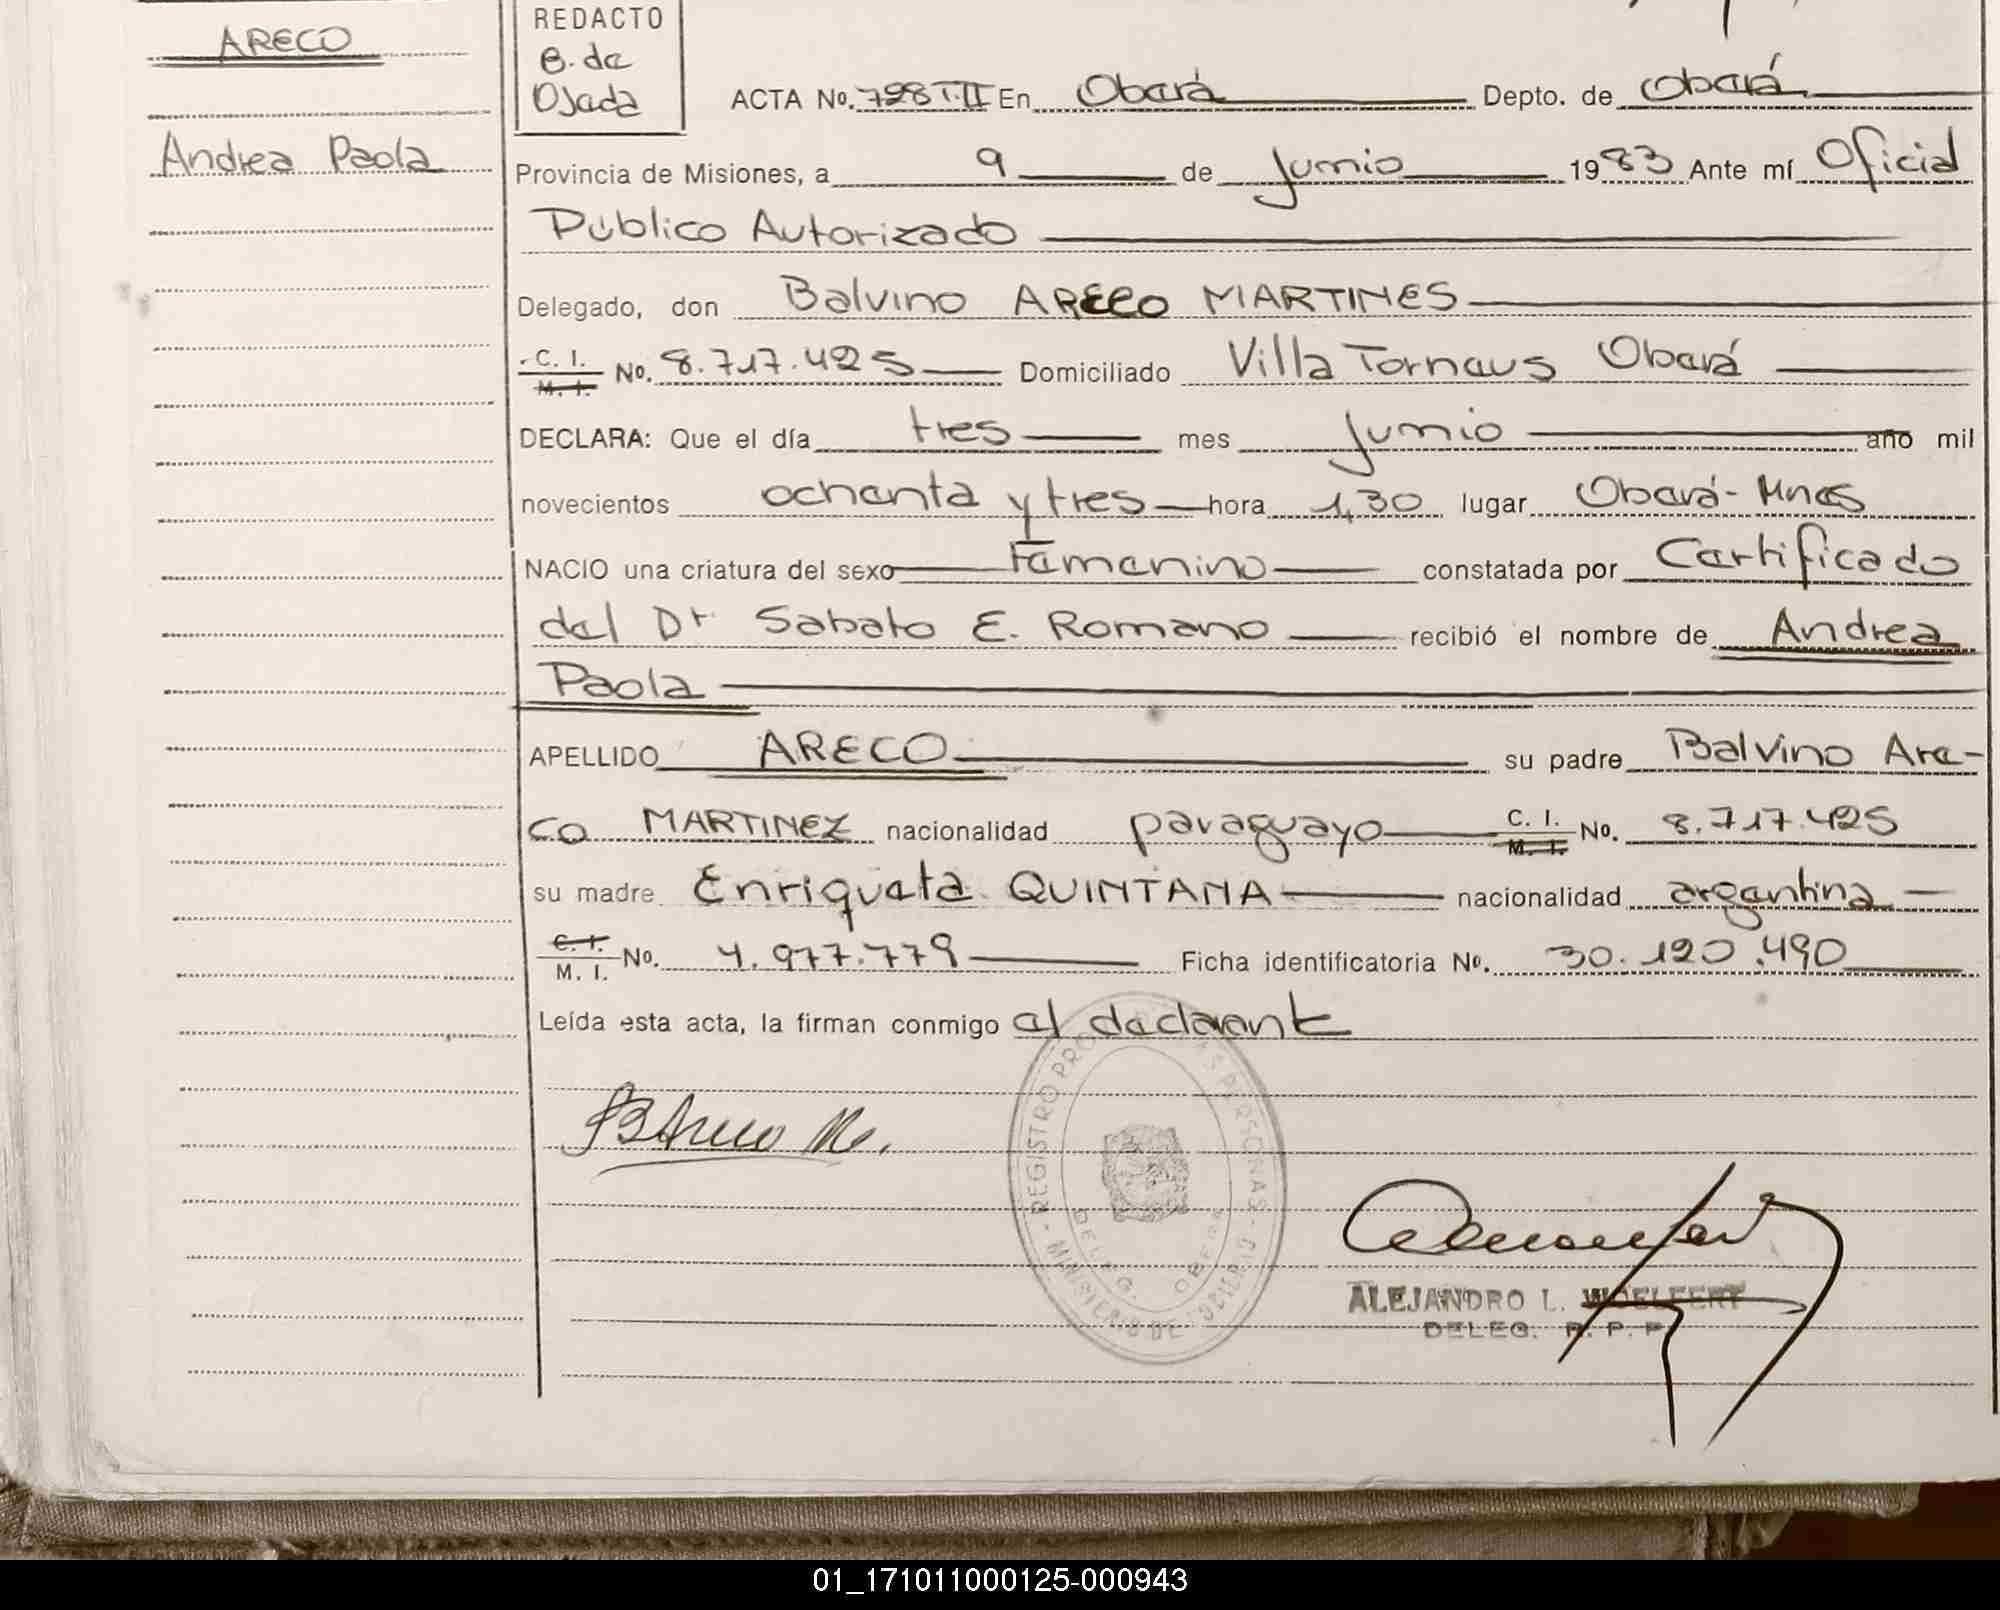 ARECO
Andrea Paola
REDACTO
E. de
Ojeda
ACTA No. 798 T.II En Oberá Depto. de Oberá
Provincia de Misiones, a 9 de Junio 1983 Ante mí Oficial
Público Autorizado
Delegado, don Balvino ARECO MARTINES
C. I. M. I. No. 8.717.425 Domiciliado Villa Tornaus Oberá
DECLARA: Que el día tres mes Junio año mil
novecientos ochenta y tres hora 1,30 lugar Oberá - Mnes
NACIO una criatura del sexo Femenino constatada por Certificado
del Dr Sabato E. Romano recibió el nombre de Andrea
Paola
APELLIDO ARECO su padre Balvino Are-
co MARTINEZ nacionalidad paraguayo C. I. M. I. No. 8.717.425
su madre Enriqueta QUINTANA nacionalidad argentina
C. I. M. I. No. 4.977.779 Ficha identificatoria No. 30.120.490
Leída esta acta, la firman conmigo el declarante
BAreco M.
REGISTRO PERSONAS - MINISTERIO DE GOBIERNO
DELEG. OBERA
ALEJANDRO L. WOELFERT
DELEG. R. P. P.
01_171011000125-000943